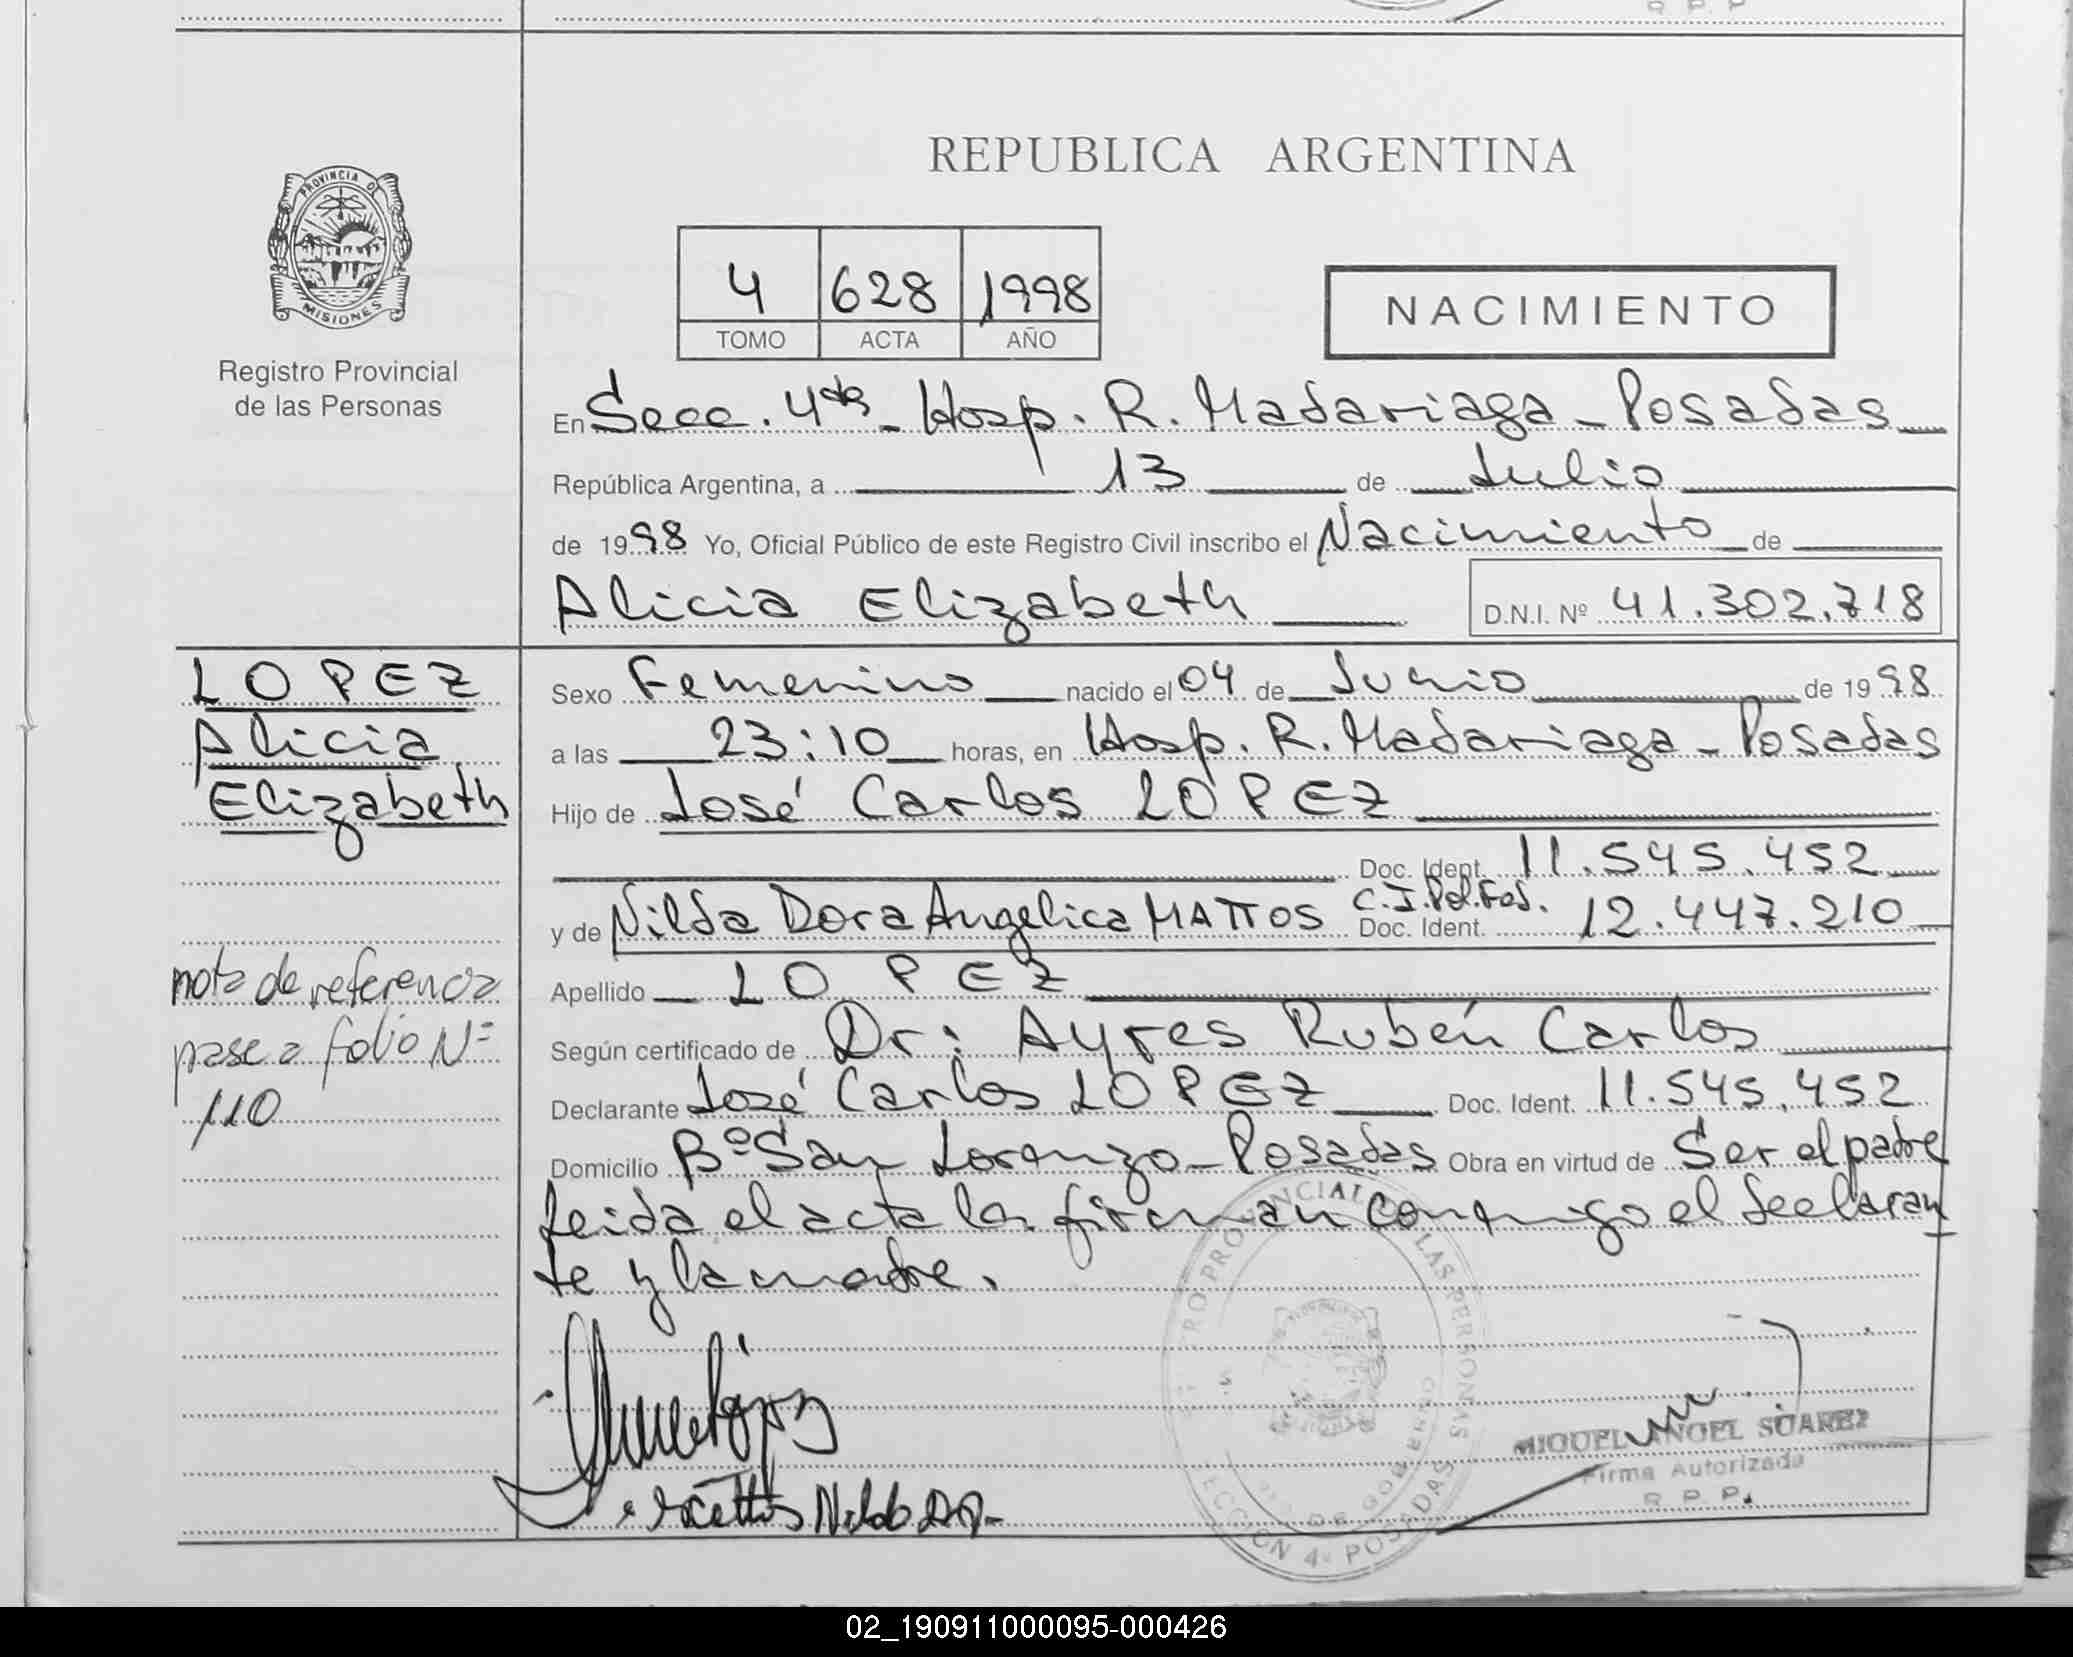 REPUBLICA ARGENTINA
PROVINCIA DE
MISIONES
Registro Provincial
de las Personas
4 628 1998
TOMO ACTA AÑO
NACIMIENTO
En Secc. 4ta - Hosp. R. Madariaga - Posadas
República Argentina, a 13 de Julio
de 1998 Yo, Oficial Público de este Registro Civil inscribo el Nacimiento de
Alicia Elizabeth D.N.I. Nº 41.302.718
LOPEZ
Alicia
Elizabeth
nota de referencia
pase a folio Nº
110
Sexo Femenino nacido el 04 de Junio de 1998
a las 23:10 horas, en Hosp. R. Madariaga - Posadas
Hijo de José Carlos LOPEZ
Doc. Ident. 11.545.452
C.I. Pol. Fed.
y de Nilda Dora Angelica MATTOS Doc. Ident. 12.447.210
Apellido LOPEZ
Según certificado de Dr: Ayres Rubén Carlos
Declarante José Carlos LOPEZ Doc. Ident. 11.545.452
Domicilio Bº San Lorenzo - Posadas Obra en virtud de Ser el padre
leida el acta la firman conmigo el declaran
te y la madre.
PROVINCIAL DE LAS PERSONAS
SECCION 4ª POSADAS
DE GOBIERNO
MIGUEL ANGEL SUAREZ
Firma Autorizada
R. P. P.
Mattos Nilda D.A.
02_190911000095-000426